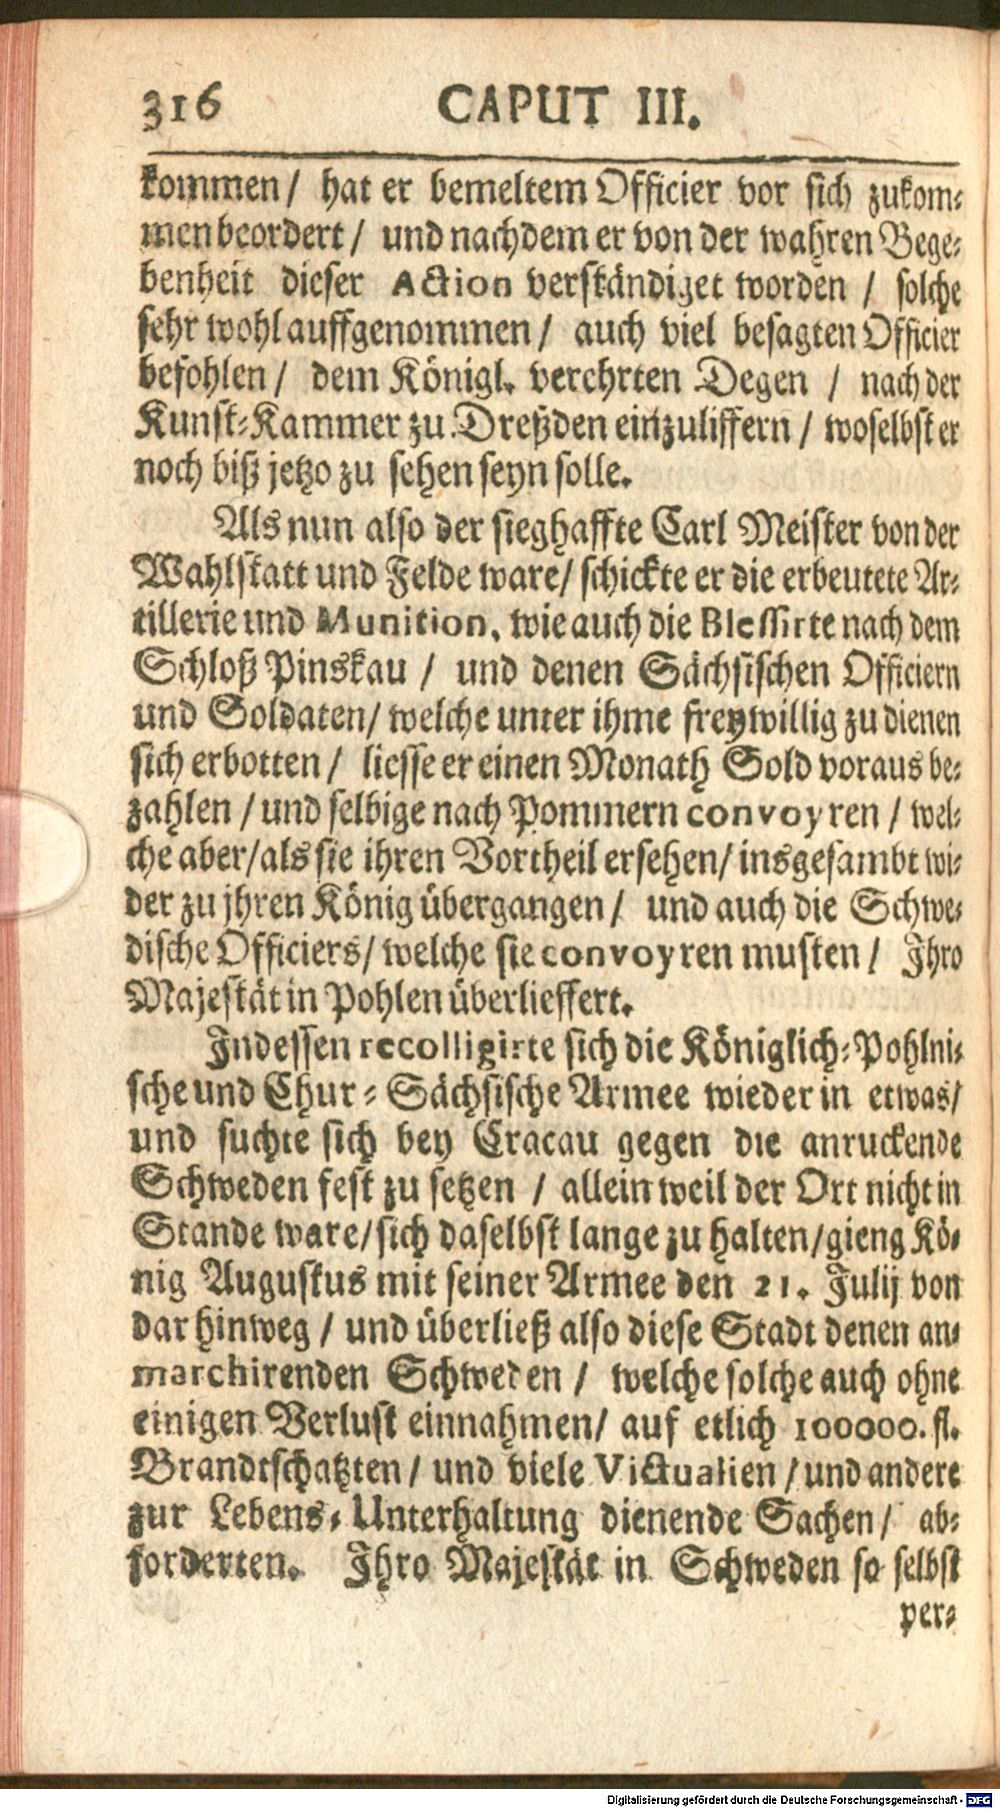 316 CAPUT III.
kommen/ hat er bemeltem Officier vor sich zukom⸗
men beordert/ und nachdem er von der wahren Bege⸗
benheit dieser Action verständiget worden / solche
sehr wohl auffgenommen/ auch viel besagten Officier
befohlen/ dem Königl. verehrten Degen / nach der
Kunst⸗Kammer zu Dreßden einzuliffern / woselbst er
noch biß jetzo zu sehen seyn solle.
Als nun also der sieghaffte Carl Meister von der
Wahlstatt und Felde ware/ schickte er die erbeutete Ar⸗
tillerie und Munition, wie auch die Blessirte nach dem
Schloß Pinskau / und denen Sächsischen Officiern
und Soldaten/ welche unter ihme freywillig zu dienen
sich erbotten/ liesse er einen Monath Sold voraus be⸗
zahlen / und selbige nach Pommern convoyren / wel⸗
che aber/ als sie ihren Vortheil ersehen/ insgesambt wi⸗
der zu jhren König übergangen/ und auch die Schwe⸗
dische Officiers/ welche sie convoyren musten / Ihro
Majestät in Pohlen überlieffert.
Indessen recolligirte sich die Königlich⸗Pohlni⸗
sche und Chur⸗Sächsische Armee wieder in etwas/
und suchte sich bey Cracau gegen die anruckende
Schweden fest zu setzen / allein weil der Ort nicht in
Stande ware/ sich daselbst lange zu halten/ gieng Kö⸗
nig Augustus mit seiner Armee den 21. Julij von
dar hinweg / und überließ also diese Stadt denen an⸗
marchirenden Schweden / welche solche auch ohne
einigen Verlust einnahmen/ auf etlich 100000. fl.
Brandtschatzten/ und viele Victualien / und andere
zur Lebens⸗Unterhaltung dienende Sachen/ ab⸗
forderten. Ihro Majestät in Schweden so selbst
per⸗
Digitalisierung gefördert durch die Deutsche Forschungsgemeinschaft - DFG